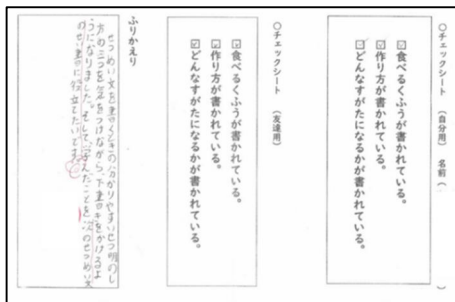 ○チェックシート (自分用) 名前( )
☑食べるくふうが書かれている。
☑作り方が書かれている。
☑どんなすがたになるかが書かれている。
○チェックシート (友達用)
☑食べるくふうが書かれている。
☑作り方が書かれている。
☑どんなすがたになるかが書かれている。
ふりかえり
せつめい文を書くときの分かりやすいせつ明のし
方の三つを気をつけながら、下書きをかけるよ
うになりました。そして、学んだことを次のせつめい文
のせい書に役立てたいです。